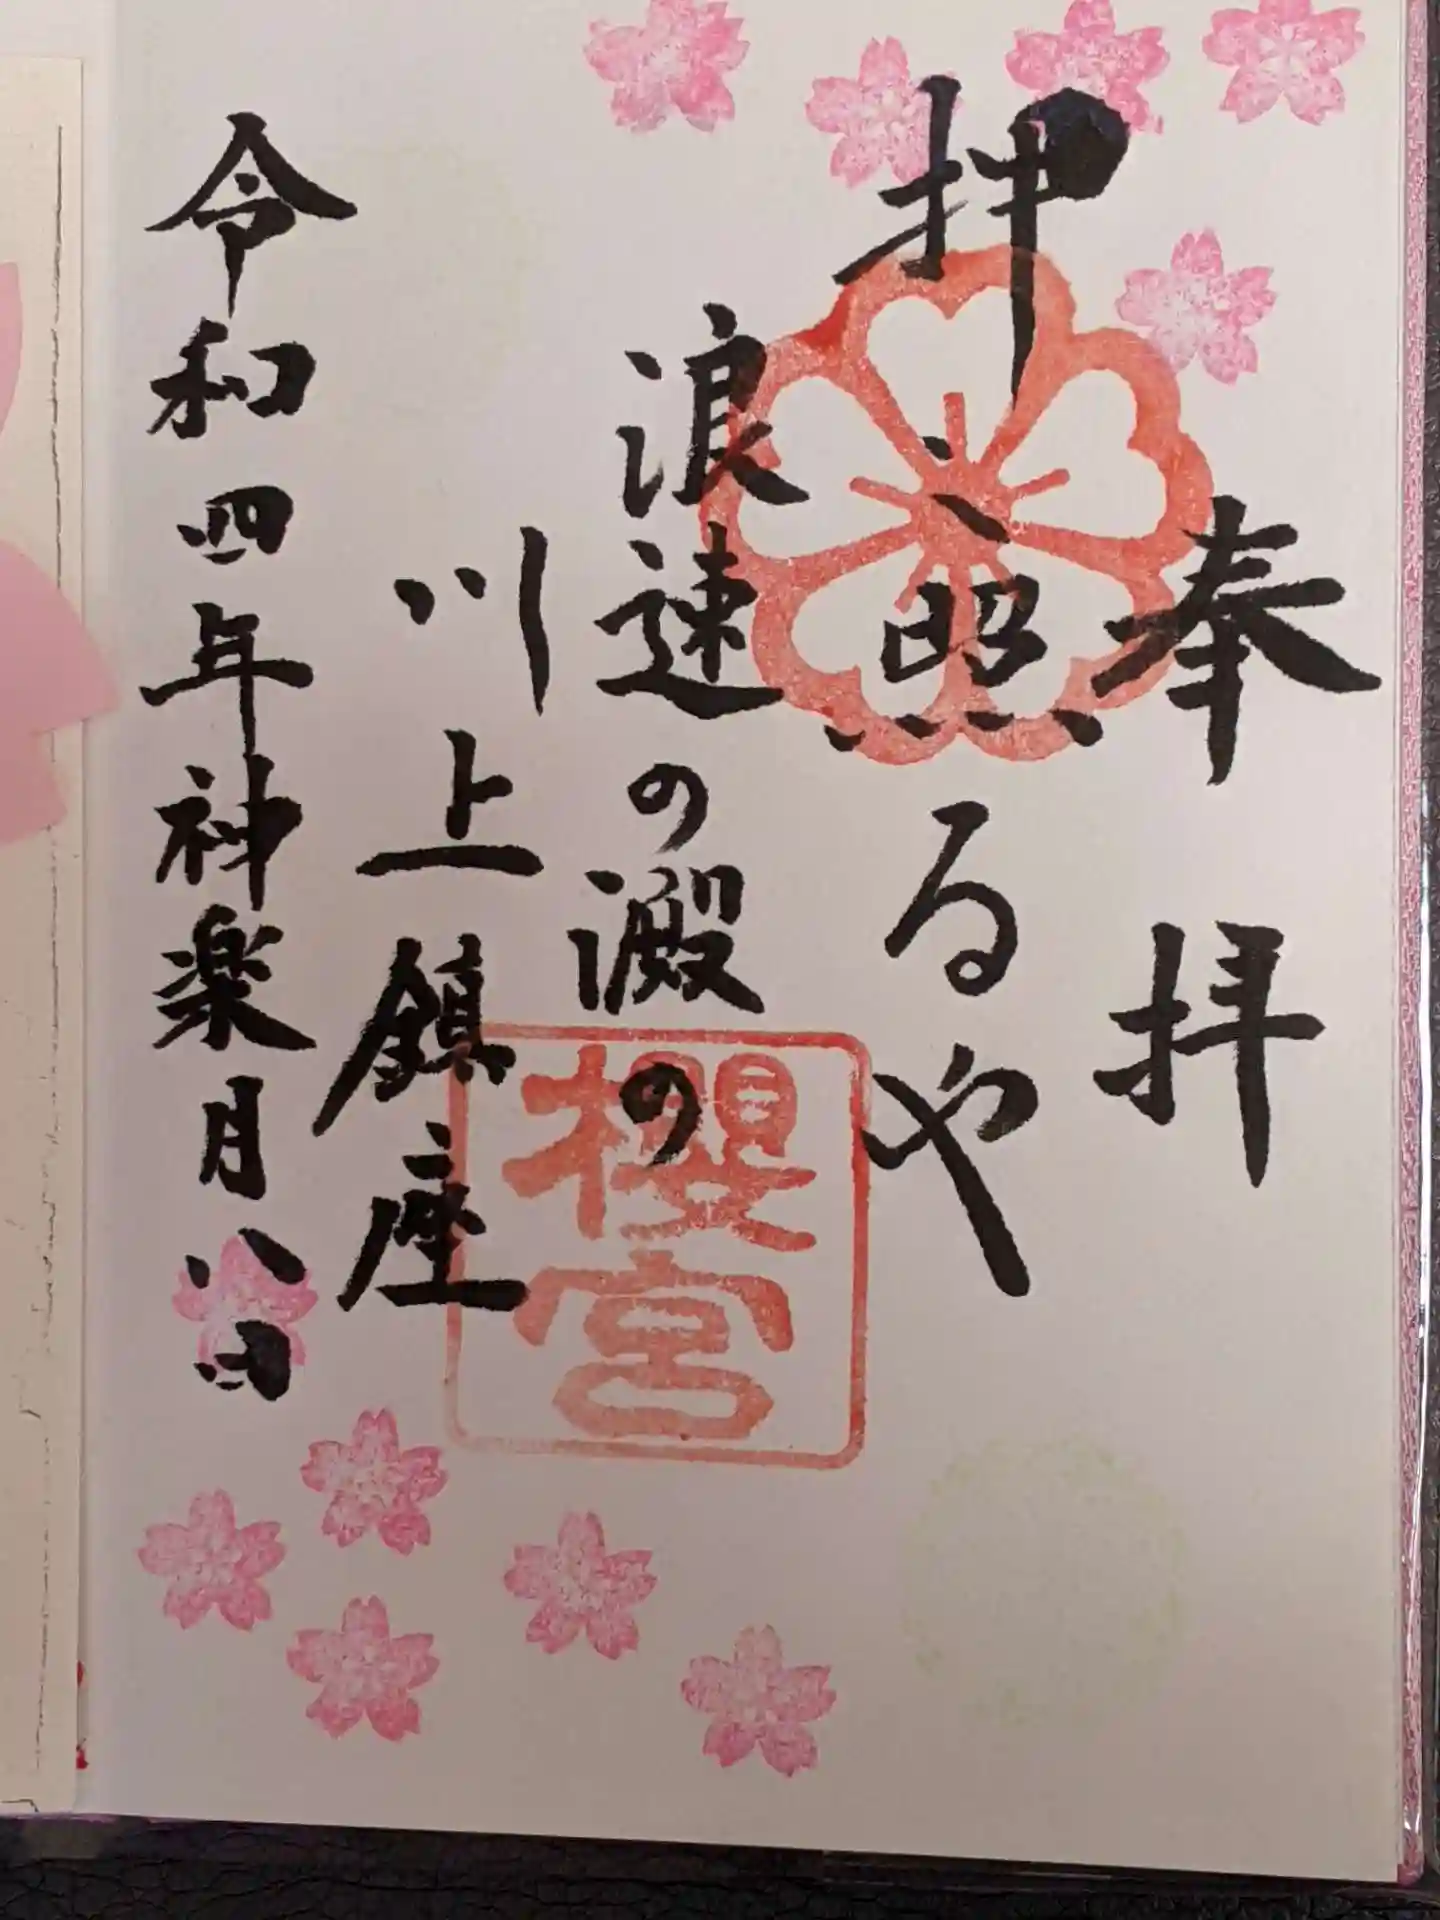 奉拝
押し照るや
浪速の澱の
川上鎮座
令和四年神楽月八日
櫻宮